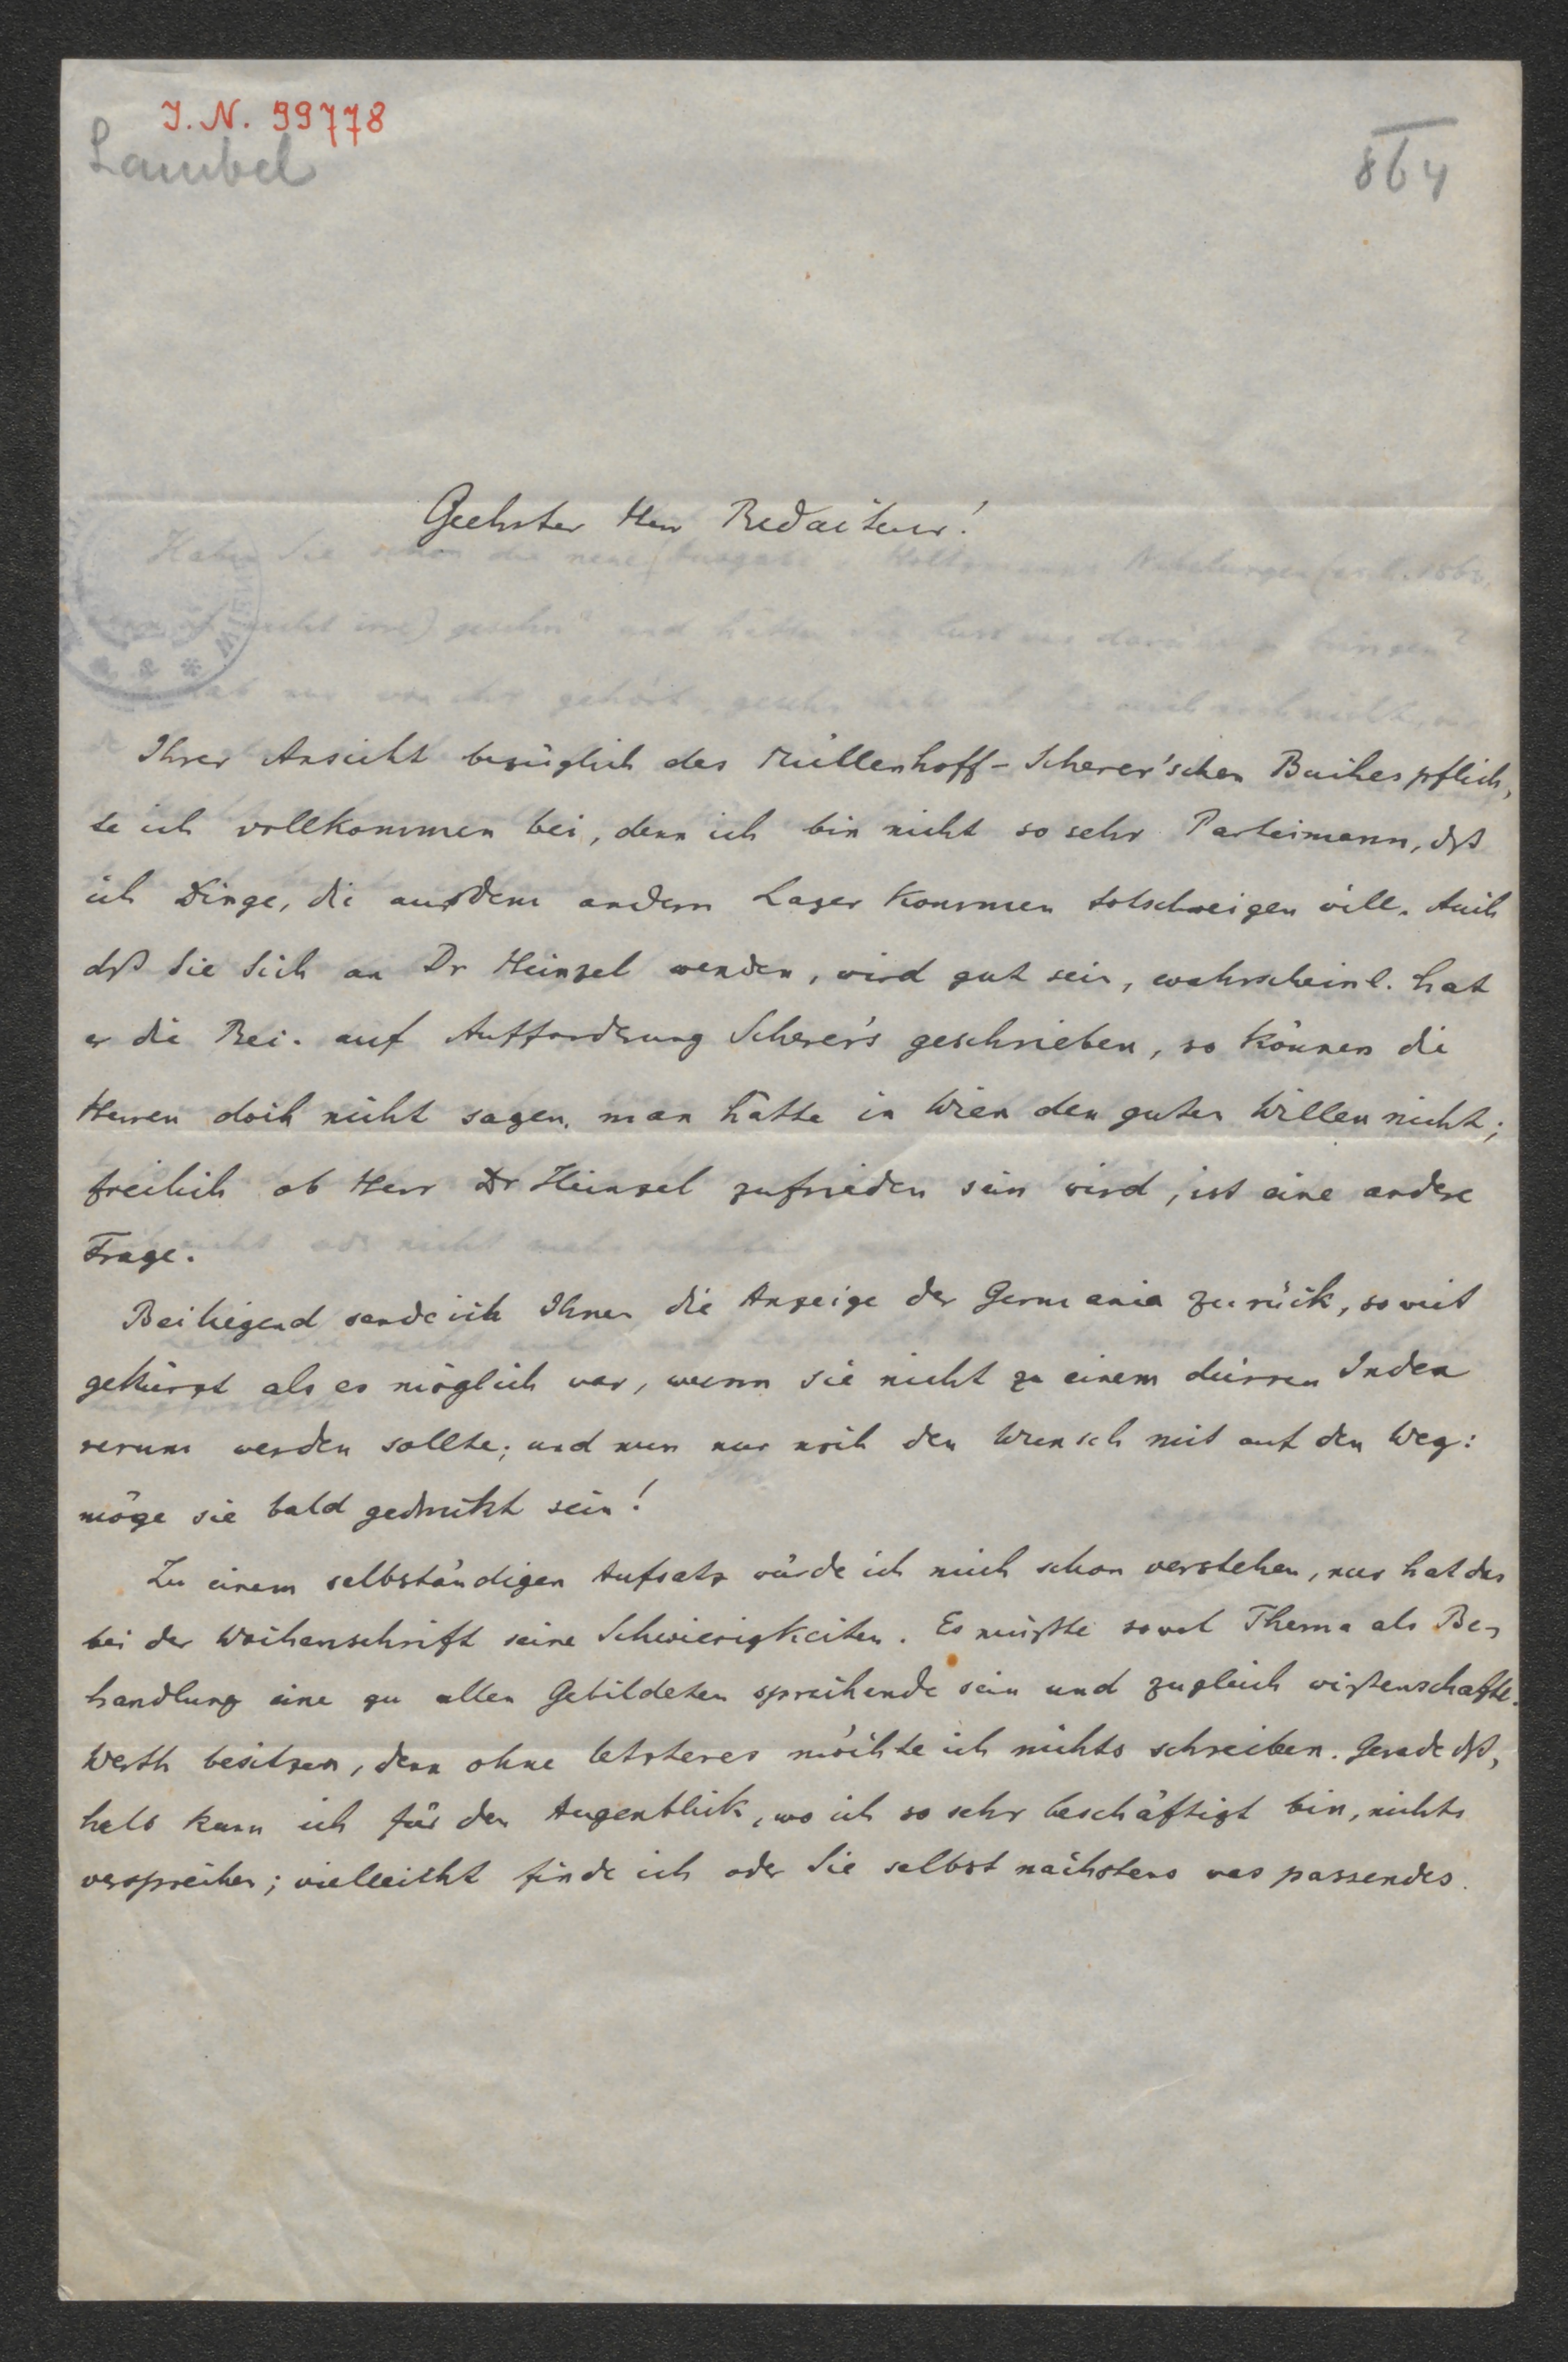 I. N. 99778
Lambel
864
Geehrter Herr Redacteur!
Ihrer Ansicht bezüglich des Müllenhoff-Scherer'schen Buches pflich,
te ich vollkommen bei, denn ich bin nicht so sehr Parteimann, dß
ich Dinge, die aus dem andern Lager kommen totschweigen will. Auch
dß Sie Sich an Dr Heinzel wenden, wird gut sein, wahrscheinl. hat
er die Rec. auf Aufforderung Scherer's geschrieben, so können die
Herren doch nicht sagen, man hätte in Wien den guten Willen nicht;
freilich ob Herr Dr Heinzel zufrieden sein wird, ist eine andere
Frage.
Beiliegend sende ich Ihnen die Anzeige der Germania zurück, soweit
gekürzt als es möglich war, wenn sie nicht zu einem dürren Index
rerum werden sollte; und nun nur noch den Wunsch mit auf den Weg:
möge sie bald gedruckt sein!
Zu einem selbständigen Aufsatz würde ich mich schon verstehen, nur hat das
bei der Wochenschrift seine Schwierigkeiten. Es müßte sowol Thema als Be-
handlung eine zu allen Gebildeten sprechende sein und zugleich wißenschaftl.
Werth besitzen, denn ohne letzteres möchte ich nichts schreiben. Gerade dß,
halb kann ich für den Augenblick, wo ich so sehr beschäftigt bin, nichts
versprechen; vielleicht finde ich oder Sie selbst nächstens was passendes.